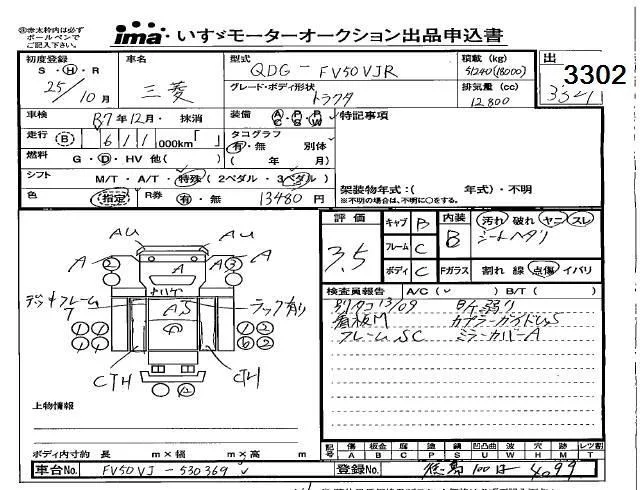 ㊟赤太枠内は必ず
ボールペンで
ご記入下さい。
ima いすゞモーターオークション出品申込書
初度登録 車名 型式 積載 (kg) 出
S・H・R 三菱 QDG-FV50VJR 51240(18000) 3302
25/10月 グレード・ボディ形状 排気量 (cc)
トラクタ 12800
車検 R7年12月・抹消 装備 AC PS PW 特記事項
走行 (B) 611 000km「 」 タコグラフ
有・無 別体
燃料 G・D・HV 他( ) ( 年 月)
シフト M/T・A/T・特殊 (2ペダル・3ペダル)
色 (指定) R券 有・無 13480円
架装物年式:( 年式)・不明
※不明の場合は、不明に○をする。
評価 キャブ B 内装 汚れ 破れ ヤニ スレ
3.5 フレーム C B シートヘタリ
ボディ C Fガラス 割れ 線 点傷 イバリ
検査員報告 A/C( ✓ ) B/T( )
別タコ 13/09 Bケ弱り
看板M カプラーガイドUS
フレームSC ミラーカバーA
AU AU
A A
② A A③
ハイケ
デッキフレームT AS ラック有り
① ① ① ②
① ① ⑥ ②
CTH CTH
上物情報
ボディ内寸約 長 m×幅 m×高 m
記号 傷 板金 腐 塗 錆 凹凸曲 波 穴 跡 レツ割
A B C P S U W H M T
車台No. FV50VJ-530369 登録No. 徳島 100 は 4099